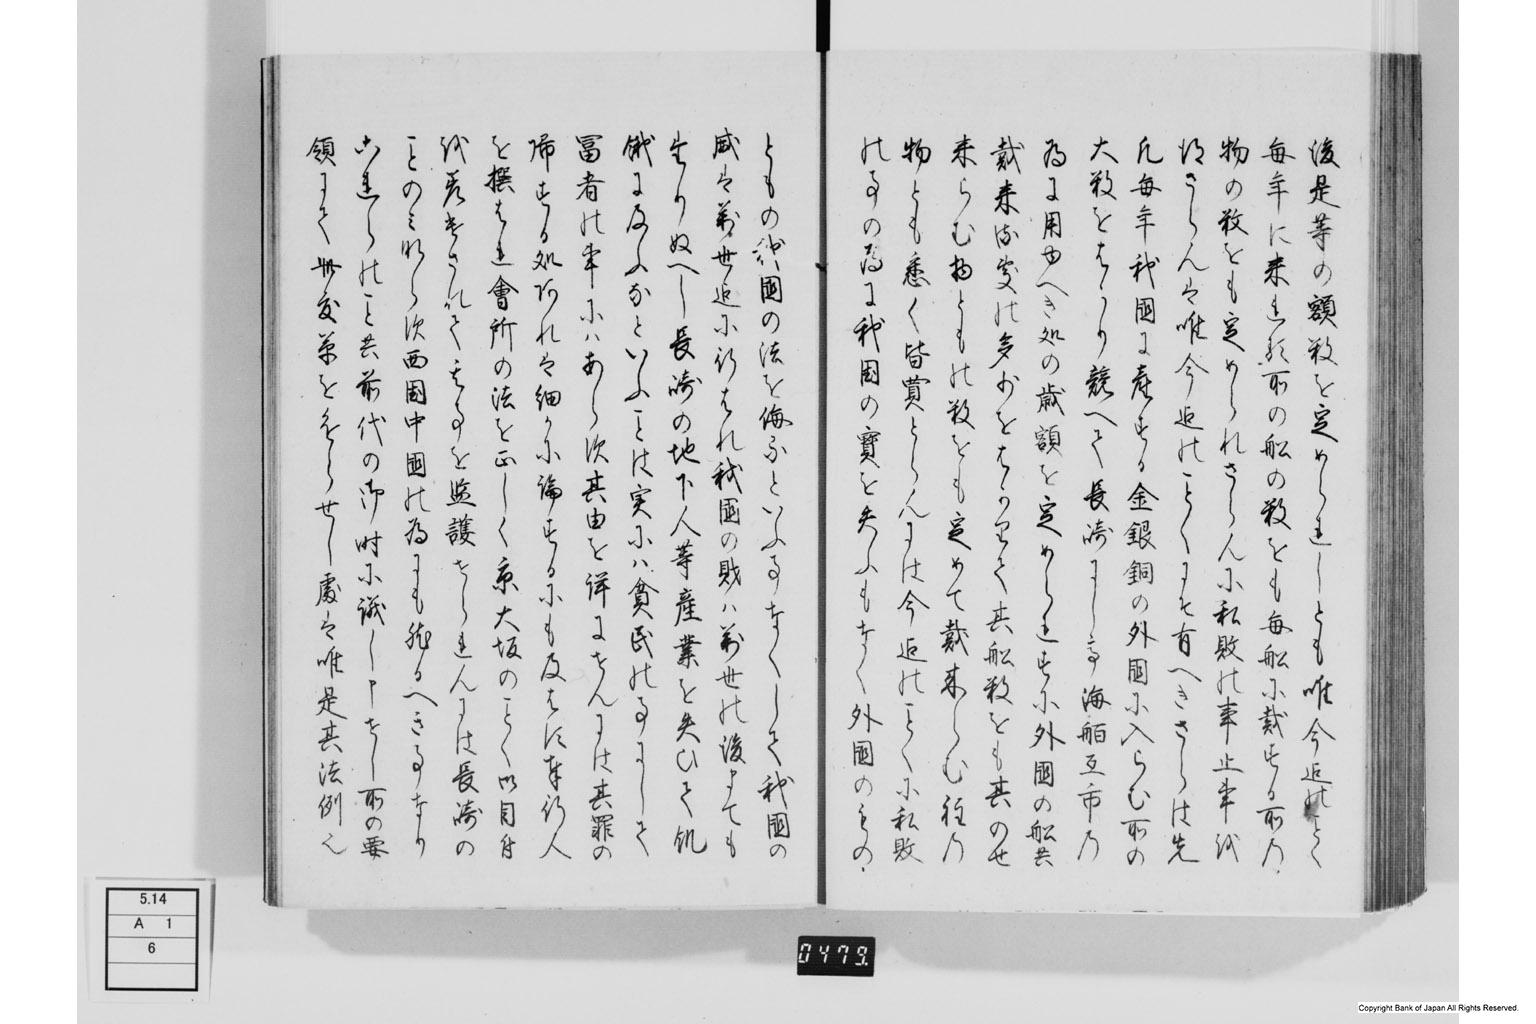 後是等の額数を定められしとも唯今迄のことく
毎年に来れる所の船の数をも毎船に載する所の
物の数をも定められさらんに私敗の事止事を
得さらんは唯今迄のことくにそ有へきさらは先
凡毎年我國に産する金銀銅の外國に入らむ所の
大数をはかり競へて長崎にして海舶互市の
為に用ゆへき処の歳額を定められすに外國の船共
載来る貨の多少をはかりて其船数をも其のせ
来らむ物ともの数をも定めて載来らしむ程の
物とも悉く皆買とらんには今迄のことくに私敗
の事の為に我国の寶を失ふもなく外國のもの
ともの我國の法を侮るといふ事なくして我國の
威は萬世迄に行はれ我國の財ハ萬世の後までも
生りぬへし長崎の地下人等産業を失ひて飢
餓に及ふなといふことは実にハ貧民の事にして
冨者の事にハあらす其由を詳にせんには其罪の
帰する処あれは細かに論するにも及はす奉行人
を撰はれ會所の法を正しく京大坂のことく御目付
を差置されて其事を監護せられんには長崎の
ことのみならす西國中國の為にも然るへき事なり
これらのこと共前代の御時に議し申せし所の要
領にて此度草をまいらせし處は唯是其法例也
5.14
A 1
6
0479
Copyright Bank of Japan All Rights Reserved.